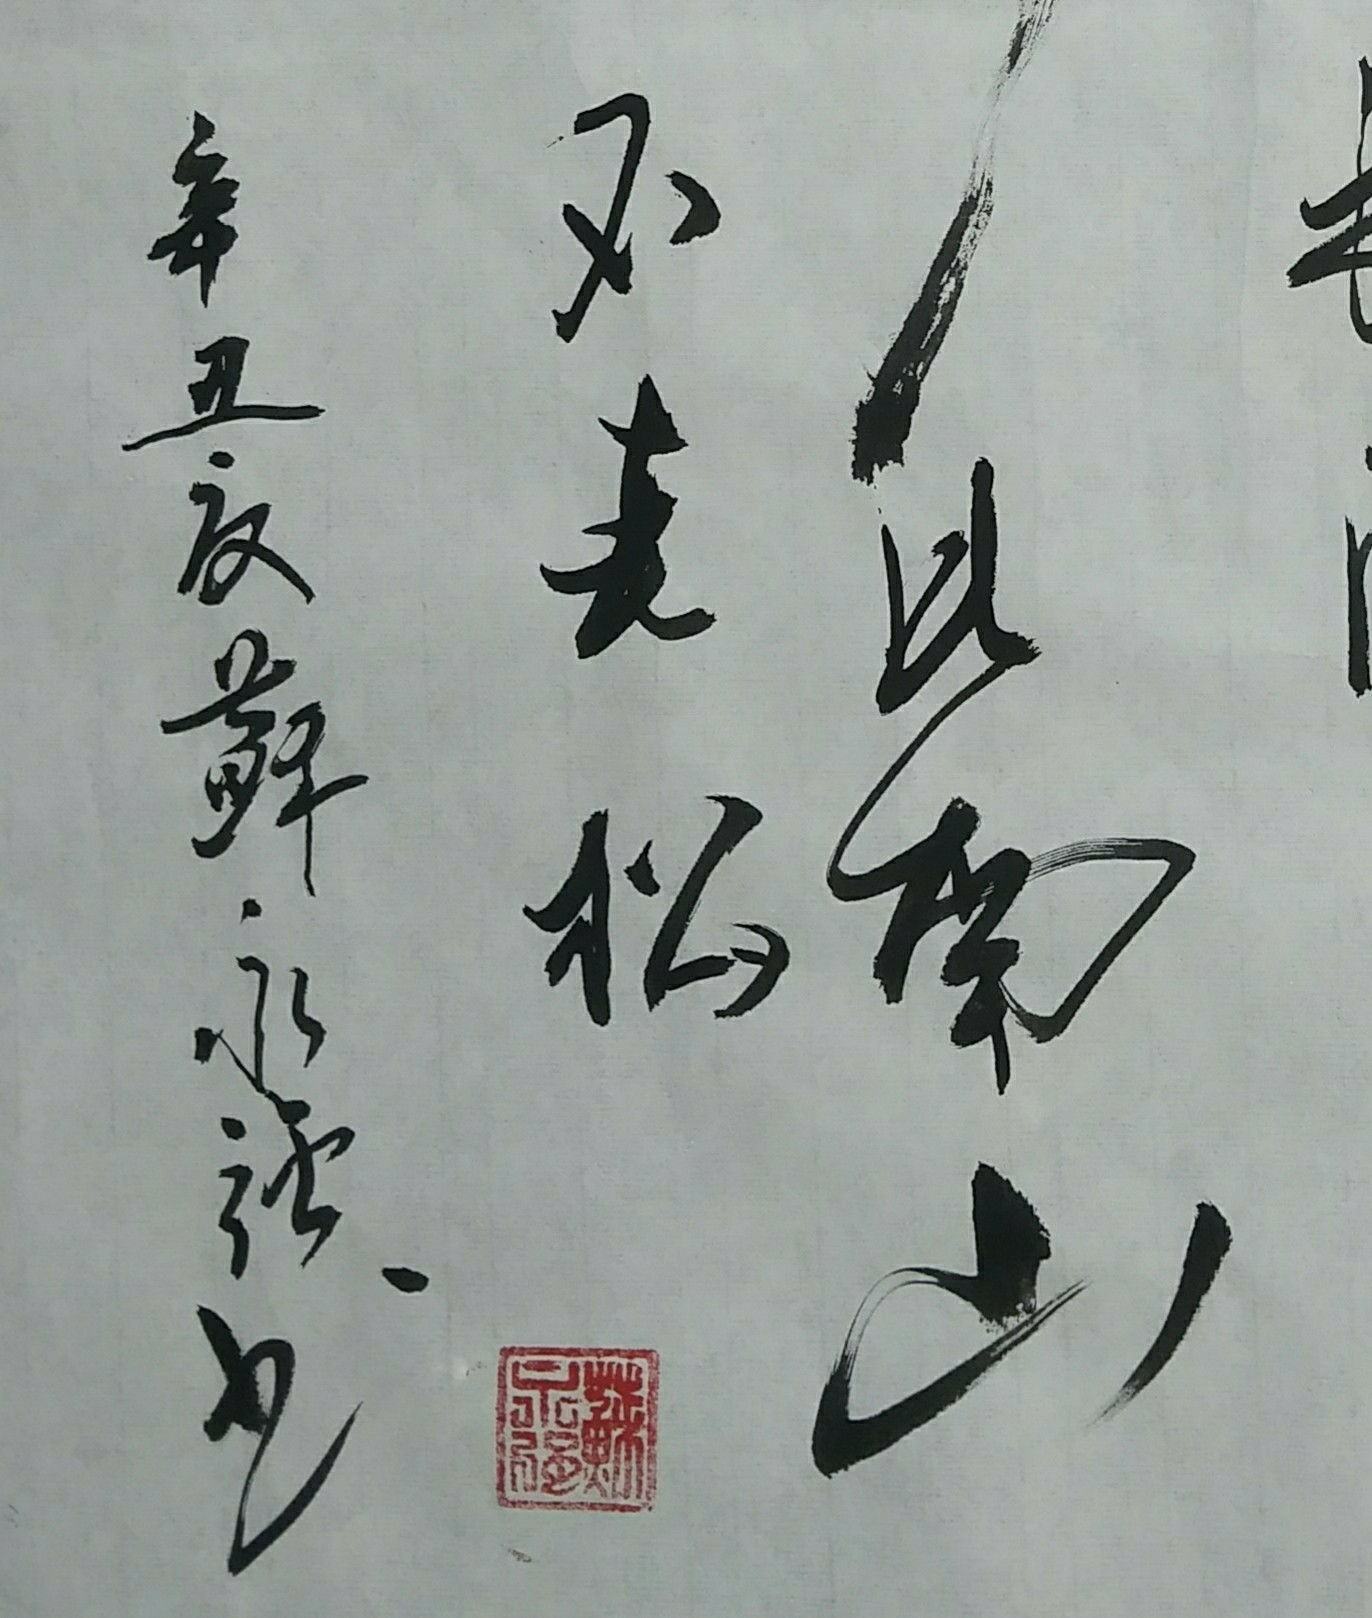 長
比南山
不老松
辛丑夏蘇永强书
蘇永强